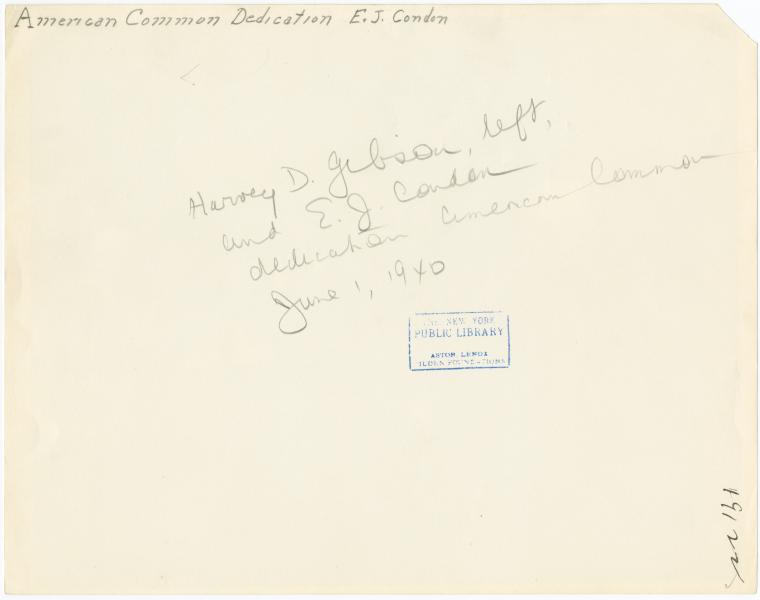 American Common Dedication E. J. Condon
Harvey D. Gibson, left,
and E. J. Condon
dedication American Common
June 1, 1940
THE NEW YORK
PUBLIC LIBRARY
ASTOR, LENOX
TILDEN FOUNDATIONS